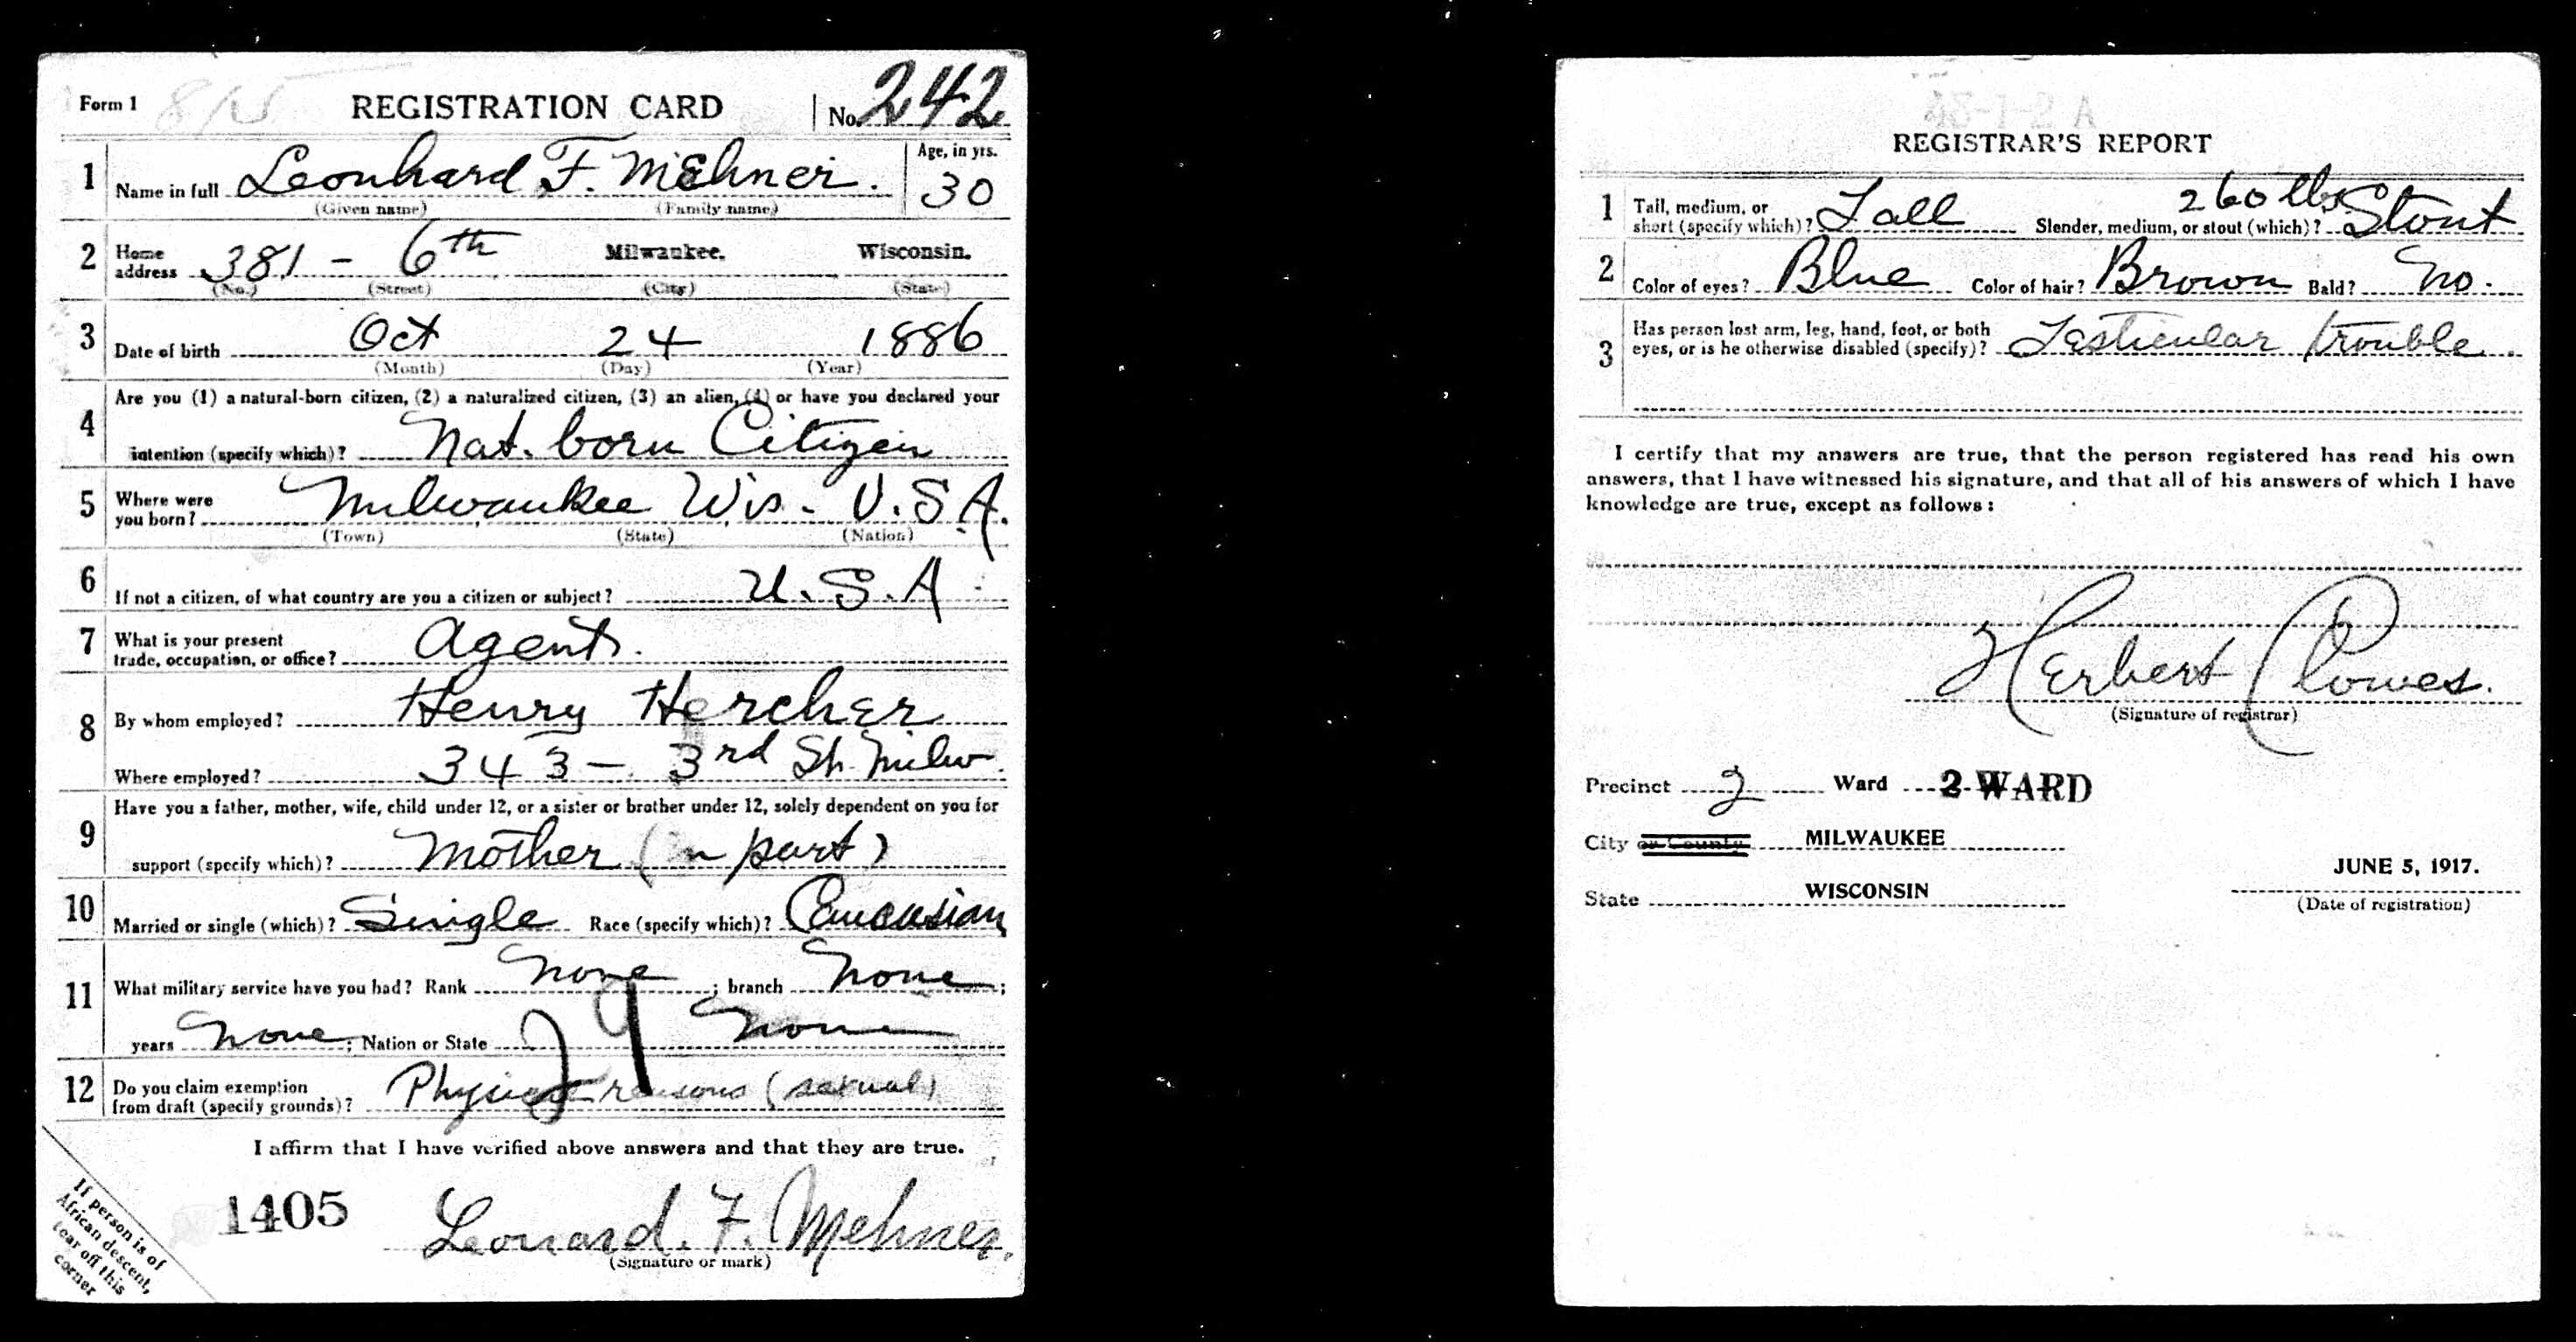 Form 1 REGISTRATION CARD No. 242
1 Name in full Leonhard F. Mehner. Age, in yrs. 30
(Given name) (Family name)
2 Home address 381 - 6th Milwaukee. Wisconsin.
(No.) (Street) (City) (State)
3 Date of birth Oct 24 1886
(Month) (Day) (Year)
4 Are you (1) a natural-born citizen, (2) a naturalized citizen, (3) an alien, (4) or have you declared your
intention (specify which)? Nat. born Citizen
5 Where were you born? Milwaukee Wis. U.S.A.
(Town) (State) (Nation)
6 If not a citizen, of what country are you a citizen or subject? U.S.A.
7 What is your present trade, occupation, or office? Agent.
8 By whom employed? Henry Hercher
Where employed? 343 - 3rd St. Milw.
9 Have you a father, mother, wife, child under 12, or a sister or brother under 12, solely dependent on you for
support (specify which)? Mother (in part)
10 Married or single (which)? Single Race (specify which)? Caucasian
11 What military service have you had? Rank none; branch none;
years none; Nation or State none
12 Do you claim exemption from draft (specify grounds)? Physical reasons (sexual)
I affirm that I have verified above answers and that they are true.
1405 Leonard. F. Mehner.
(Signature or mark)
If person is of
African descent,
tear off this
corner
REGISTRAR'S REPORT
1 Tall, medium, or short (specify which)? Tall Slender, medium, or stout (which)? 260 lbs Stout
2 Color of eyes? Blue Color of hair? Brown Bald? No.
3 Has person lost arm, leg, hand, foot, or both eyes, or is he otherwise disabled (specify)? Testicular trouble.
I certify that my answers are true, that the person registered has read his own
answers, that I have witnessed his signature, and that all of his answers of which I have
knowledge are true, except as follows:
Herbert Clowes.
(Signature of registrar)
Precinct 2 Ward 2 WARD
City or County MILWAUKEE
JUNE 5, 1917.
State WISCONSIN
(Date of registration)